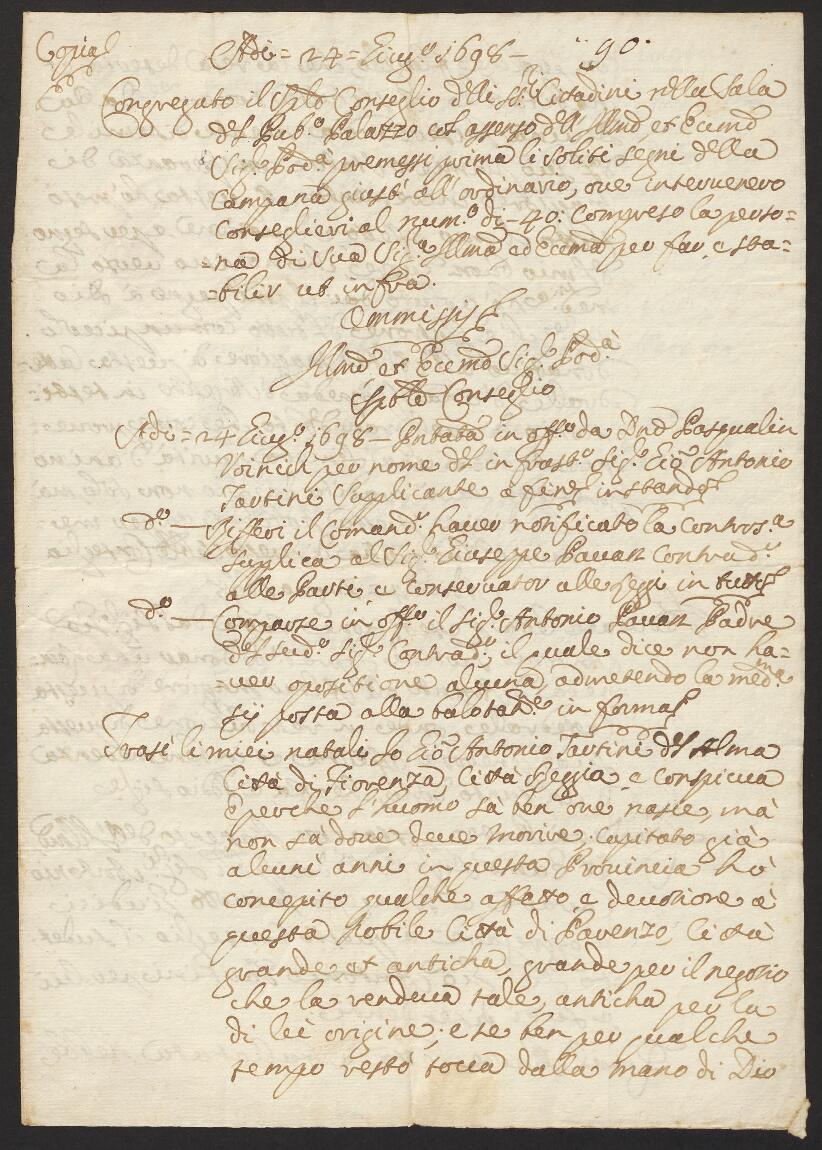 Copia
Adi = 24 = Giug.o 1698 - 90.
Congregato il Sple Conseglio delli SS.ri Cittadini nella Sala
del Pub.o Palazzo col assenso dell Illmo et Eccmo
Sig.r Pod.à premessi prima li soliti segni della
Campana giusta all'ordinario, ove intervenero
Conseglieri al num.o di - 40: Compreso la perso=
=na di Sua Sig.a Illma ed Eccma per far, e sta=
=bilir ut infra.
Ommissis
Illmo et Eccmo Sig.r Pod.à
Splle Conseglio
Adi = 24 Giug.o 1698 - Pntata in off.o da Dno Pasqualin
per nome del infrasto Sig.r Gio: Antonio
Tartini Supplicante a fine instando
d.o — Rifferi il Comand.r haver notificato la controsa
Supplica al Sig.r Giuseppe Pavan Contrad.r
alle Parti e Conservator alle Leggi in tutto
d.o — Comparse in off.o il Sig.r Antonio Pavan Padre
del sud.o Sig.r Contrad.r, il quale dice non ha=
=ver opositione alcuna, admetendo la med.ma
sij posta alla balotat.ne in forma
Trasi li miei natali Io Gio: Antonio Tartini del Alma
Città di Fiorenza, Città Reggia, e conspicua
e perche l'huomo sà ben ove nasce, mà
non sà dove deve morire, capitato già
alcuni anni in questa Provincia hò
concepito qualche affetto, e devotione à
questa Nobile Città di Parenzo, Città
grande et anticha, grande per il negotio
che la rendeva tale, anticha per la
di lei origine; e se ben per qualche
tempo restò tocca dalla mano di Dio